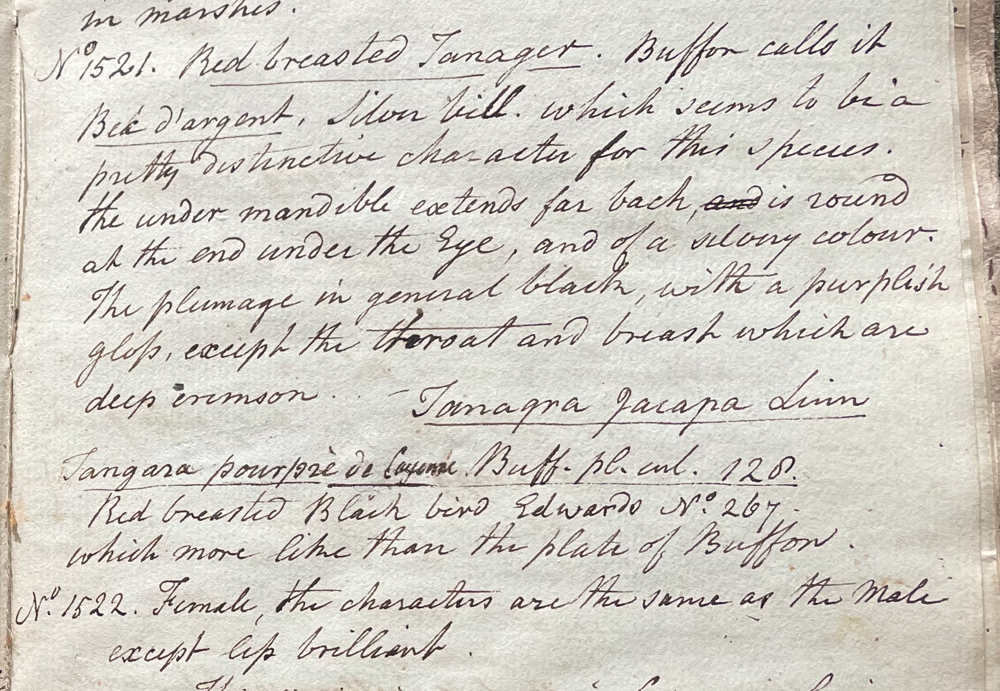 in marshes.
No 1521. Red breasted Tanager. Buffon calls it
Bec d'argent, Silver bill. which seems to be a
pretty distinctive character for this species.
the under mandible extends far back, and is round
at the end under the Eye, and of a silvery colour.
The plumage in general black, with a purplish
gloſs, except the throat and breast which are
deep crimson. - Tanagra Jacapa Linn
Tangara pourpré de Cayenne. Buff. pl. enl. 128.
Red breasted Black bird Edwards No. 267.
which more like than the plate of Buffon.
No. 1522. Female, the characters are the same as the Male
except leſs brilliant.